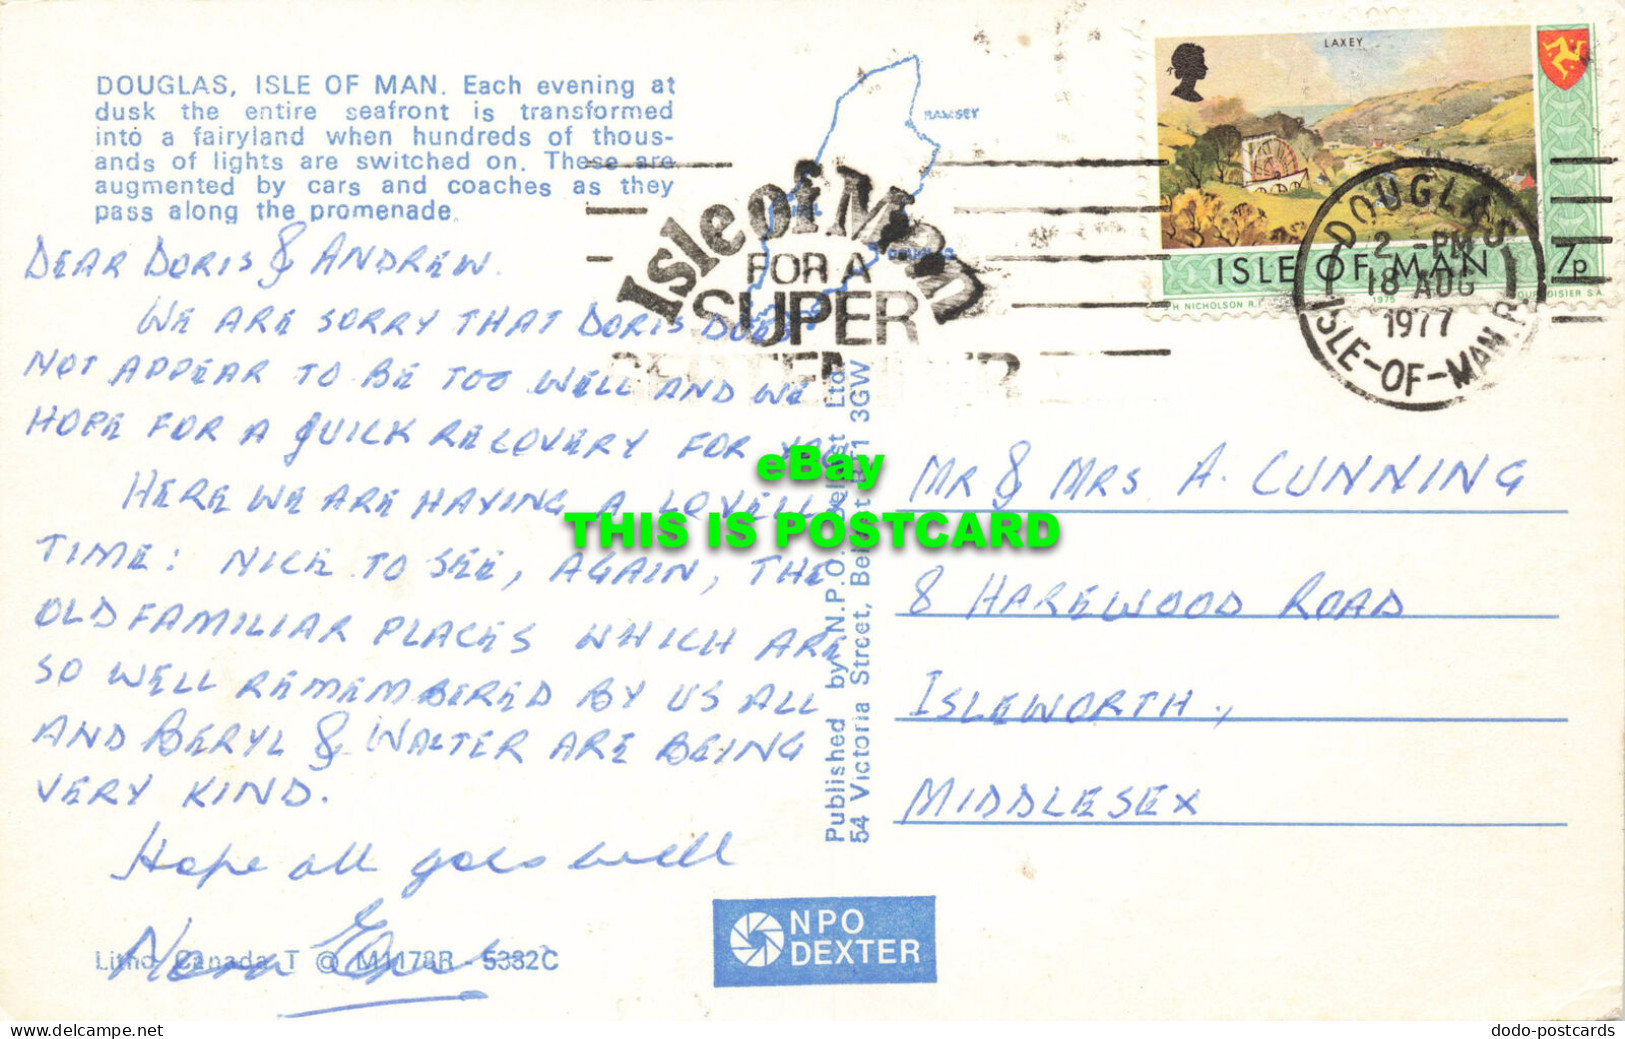 DOUGLAS, ISLE OF MAN. Each evening at
dusk the entire seafront is transformed
into a fairyland when hundreds of thous-
ands of lights are switched on. These are
augmented by cars and coaches as they
pass along the promenade.
DEAR DORIS & ANDREW.
WE ARE SORRY THAT DORIS DOES
NOT APPEAR TO BE TOO WELL AND WE
HOPE FOR A QUICK RECOVERY FOR YOU
HERE WE ARE HAVING A LOVELLY
TIME: NICE TO SEE, AGAIN, THE
OLD FAMILIAR PLACES WHICH ARE
SO WELL REMEMBERED BY US ALL
AND BERYL & WALTER ARE BEING
VERY KIND.
Hope all goes well
Litho. Canada T © M1178R - 5332C
RAMSEY
Isle of Man
FOR A
SUPER
SEPTEMBER
LAXEY
ISLE OF MAN 7p
NICHOLSON R.I.
1975
COURVOISIER S.A.
DOUGLAS
2 -PM
18 AUG
1977
ISLE-OF-MAN
Published by N.P.O. Belfast Ltd.
54 Victoria Street, Belfast BT1 3GW
eBay
THIS IS POSTCARD
MR & MRS A. CUNNING
8 HAREWOOD ROAD
ISLEWORTH.,
MIDDLESEX
NPO
DEXTER
delcampe.net
dodo-postcards